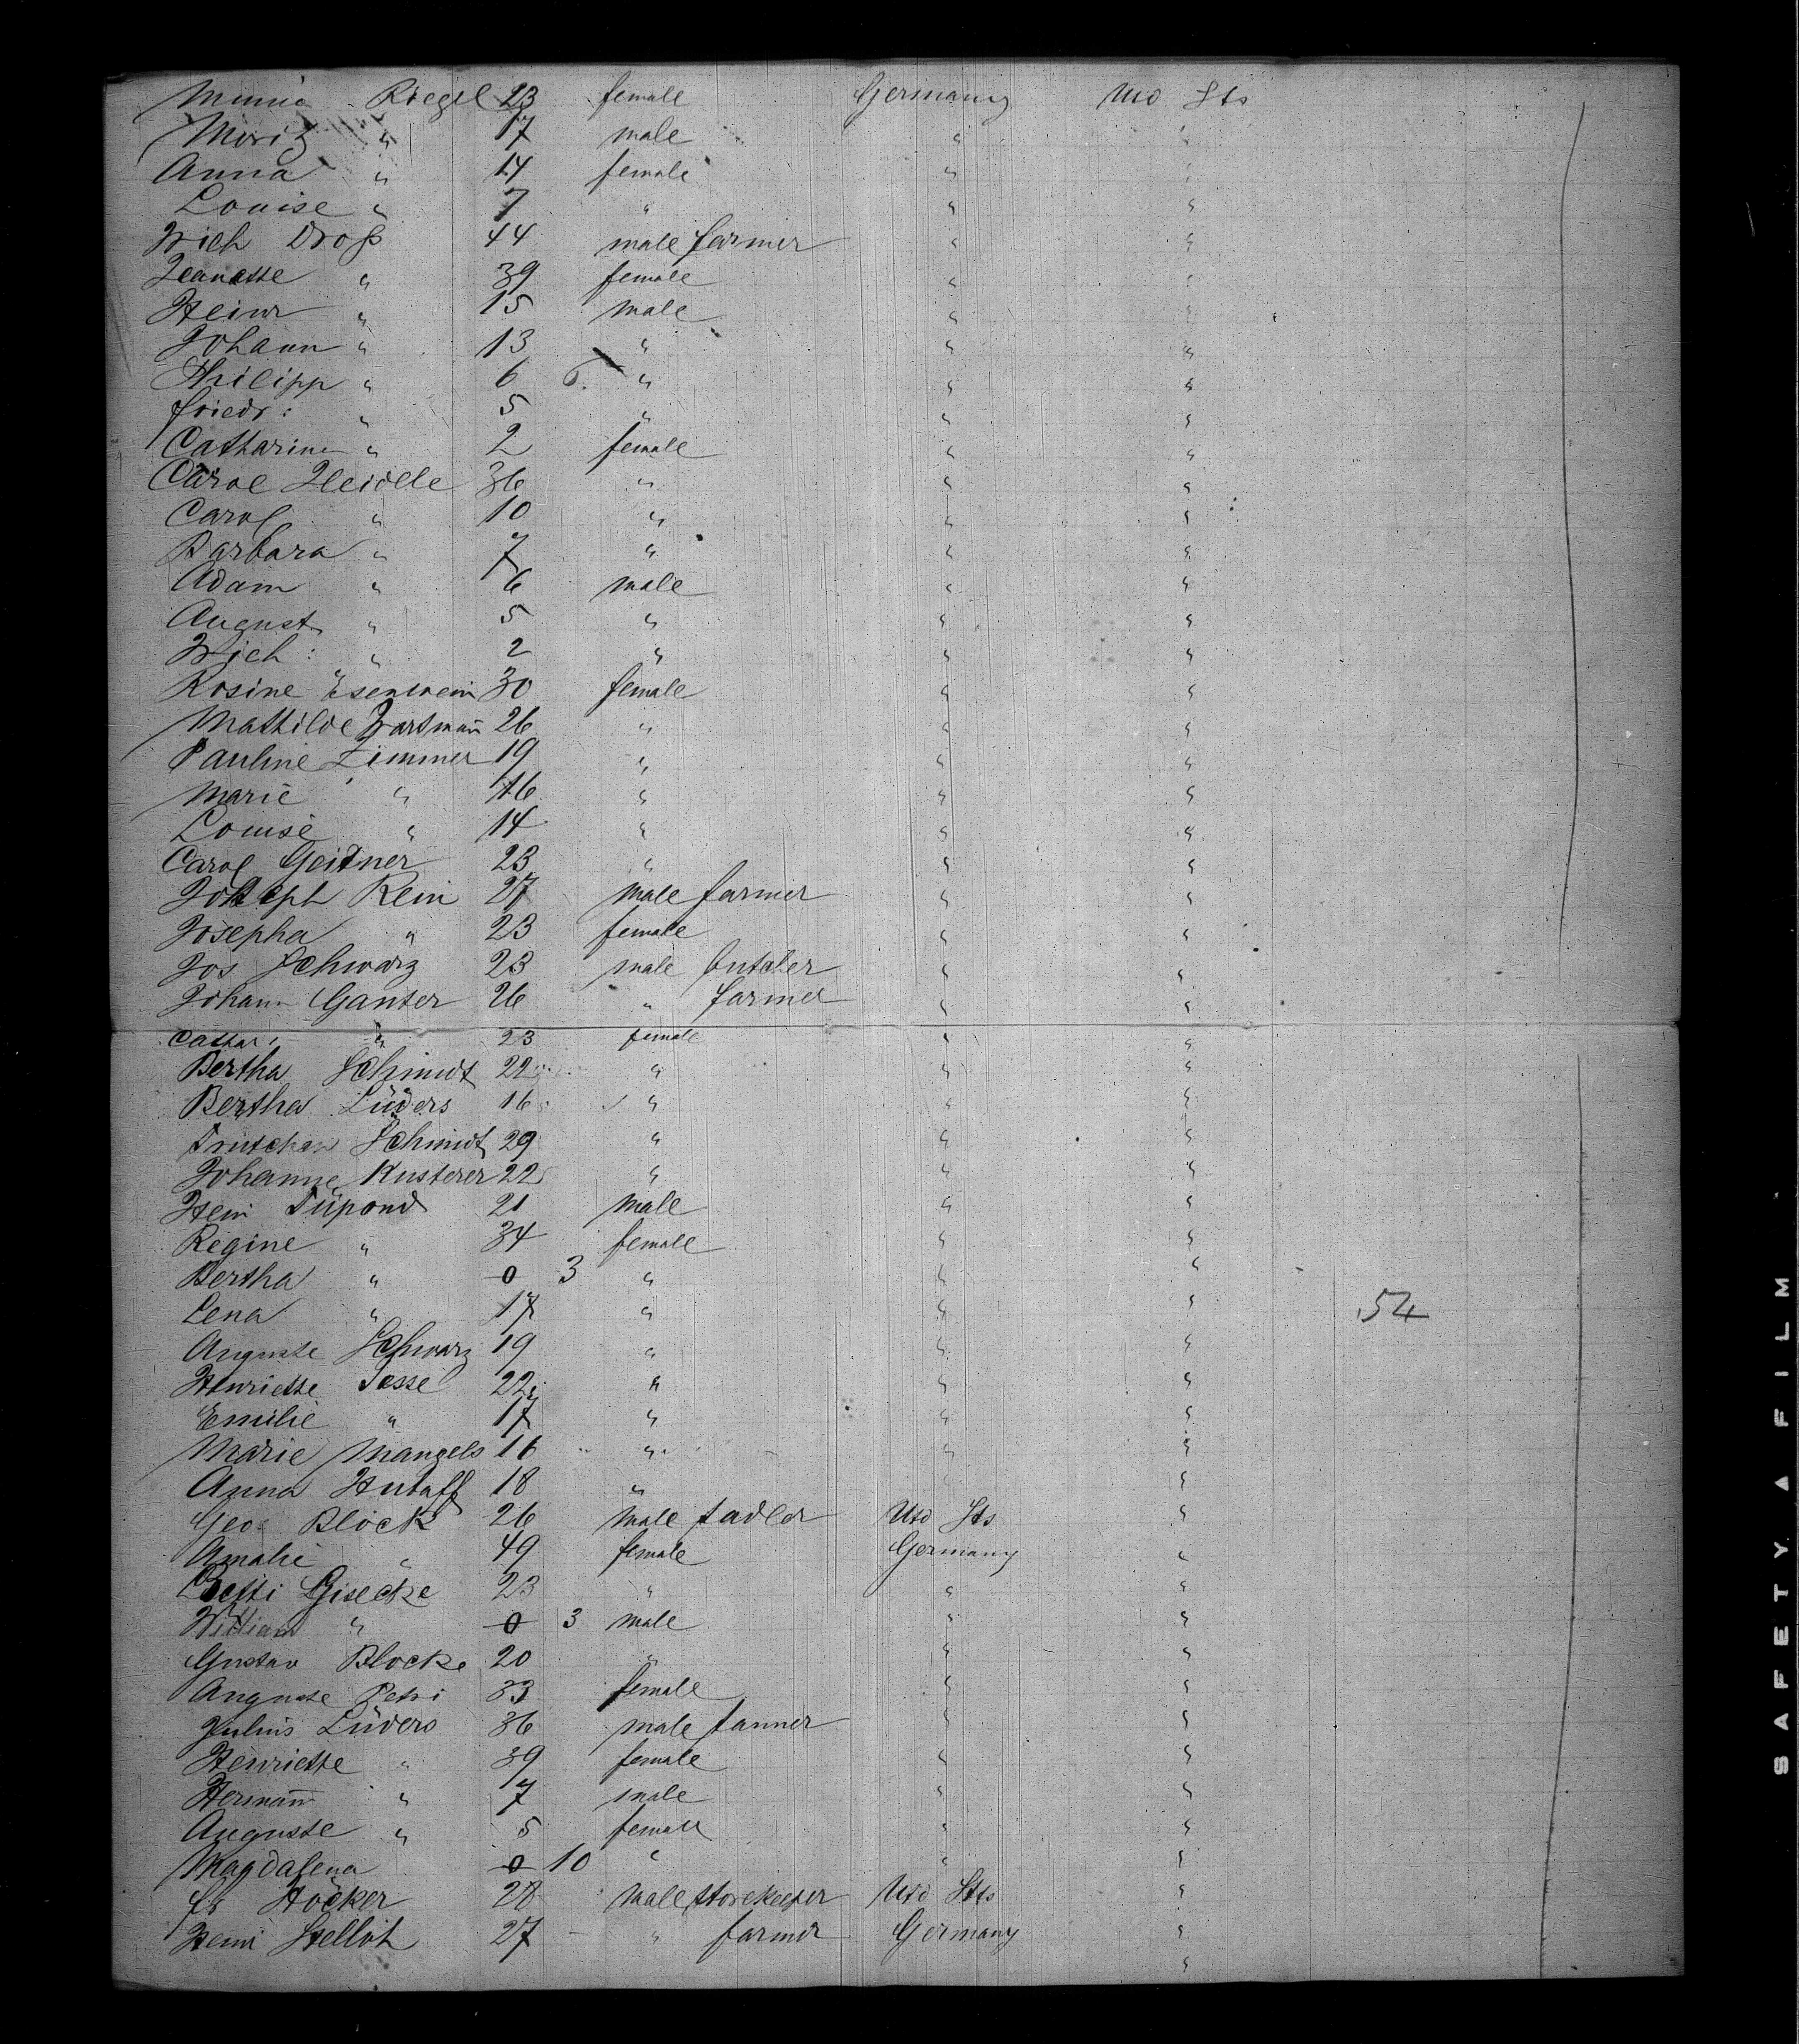 Minnie Riegel 23 female Germany Utd Sts
Moritz " 17 male " "
Anna " 14 female " "
Louise " 7 " " "
Droß 44 male farmer " "
Jeanette " 39 female " "
Heinr " 15 male " "
Johann " 13 " " "
Philipp " 6 " " "
friedr: " 5 " " "
Catharine " 2 female " "
Carol 36 " " "
Carol " 10 " " "
Barbara " 7 " " "
Adam " 6 male " "
August " 5 " " "
" 2 " " "
Rosine Esenwein 30 female " "
Mathilde 26 " " "
Pauline Zimmer 19 " " "
Marie " 16 " " "
Louise " 14 " " "
Carol Geitner 23 " " "
Joseph Rein 27 male farmer " "
Josepha " 23 female " "
Jos Schwarz 23 male butcher " "
Johann Ganter 26 " farmer " "
Cathar: " 23 female " "
Bertha Schmidt 22 " " "
Bertha Lüders 16 " " "
Schmidt 29 " " "
Johanne Kusterer 22 " " "
Hein Tüpond 21 male " "
Regine " 34 female " "
Bertha " 0 3 " " "
Lena " 17 " " "
54
Auguste Schwarz 19 " " "
Henriette Jesse 22 " " "
Emilie " 17 " " "
Marie Mangels 16 " " "
Anna Hutaff 18 " "
Geo Block 26 male sadler Utd Sts "
Amalie " 49 female Germany "
Betti Gisecke 23 " " "
William " 0 3 male " "
Gustav Blocke 20 " " "
Auguste Petri 33 female " "
Julius Lüders 36 male tanner " "
Henriette " 39 female " "
Hermann " 7 male " "
Auguste " 5 female " "
Magdalena 0 10 " " "
fr Höcker 28 male storekeeper Utd Sts "
Heinr 27 " farmer Germany "
"
SAFETY ▲ FILM